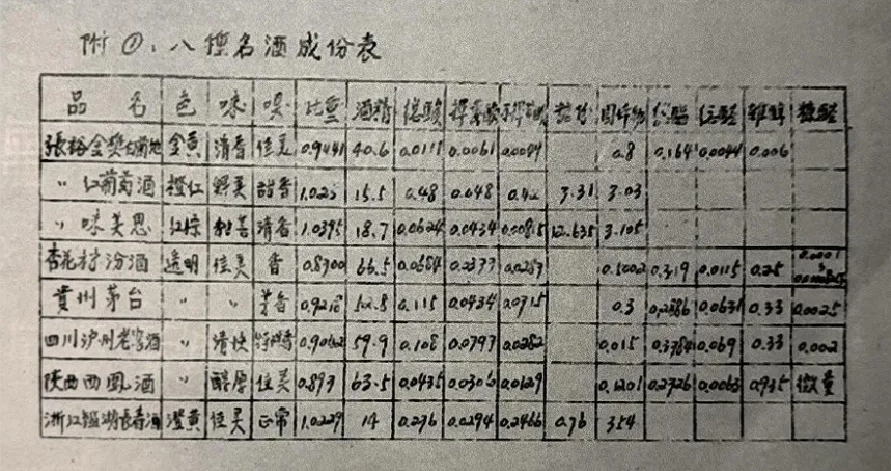 附①、八種名酒成份表
品名 色 味 嗅 比重 酒精 總酸 揮發酸 糖份 固作物 總醛 雜醇 糠醛
張裕金獎白蘭地 金黄 清香 佳美 0.9441 40.6 0.0061 0.8 0.164 0.0044 0.006
〃 红葡萄酒 橙红 鲜美 甜香 15.5 0.48 0.048 3.31 3.03
〃 味美思 红棕 清香 1.0395 18.7 0.0624 0.0434 0.00815 12.635 3.105
杏花村汾酒 透明 佳美 香 0.8700 66.5 0.0684 0.2377 0.0287 0.1002 0.319 0.0115 0.25 0.0001
貴州茅台 〃 〃 芳香 0.9218 52.8 0.115 0.0434 0.0715 0.3 0.2386 0.0631 0.33 0.0025
四川沪州老窖酒 〃 清快 59.9 0.108 0.0797 0.0282 0.015 0.3784 0.069 0.33 0.002
陕西西鳳酒 〃 醇厚 佳美 0.893 63.5 0.0435 0.0306 0.0129 0.1201 0.2726 0.0063 0.935 微量
浙江鑑湖長春酒 澄黄 佳美 正常 1.0229 14 0.276 0.0294 0.2466 0.76 354